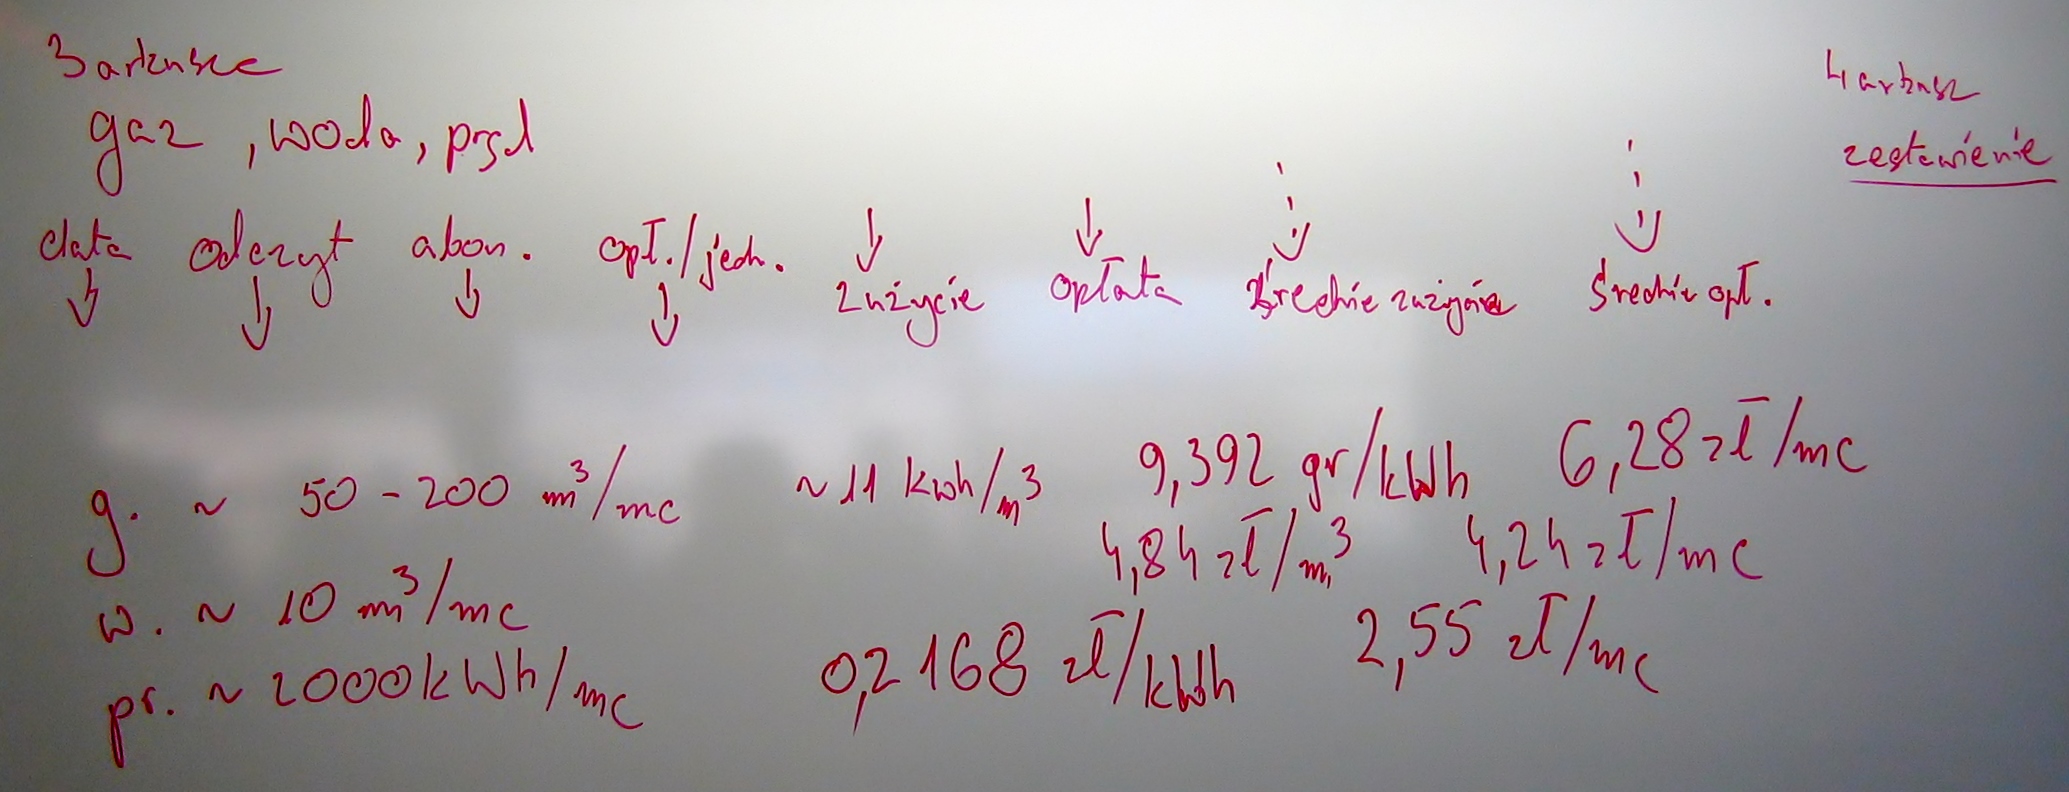 3 arkusze
4 arkusz
gaz, woda, prąd
zestawienie
data odczyt abon. opł./jedn. zużycie opłata średnie zużycie średnia opł.
g. ~ 50 - 200 m³/mc ~ 11 kwh/m³ 9,392 gr/kWh 6,28 zł/mc
w. ~ 10 m³/mc 4,84 zł/m³ 4,24 zł/mc
pr. ~ 2000 kWh/mc 0,2168 zł/kWh 2,55 zł/mc